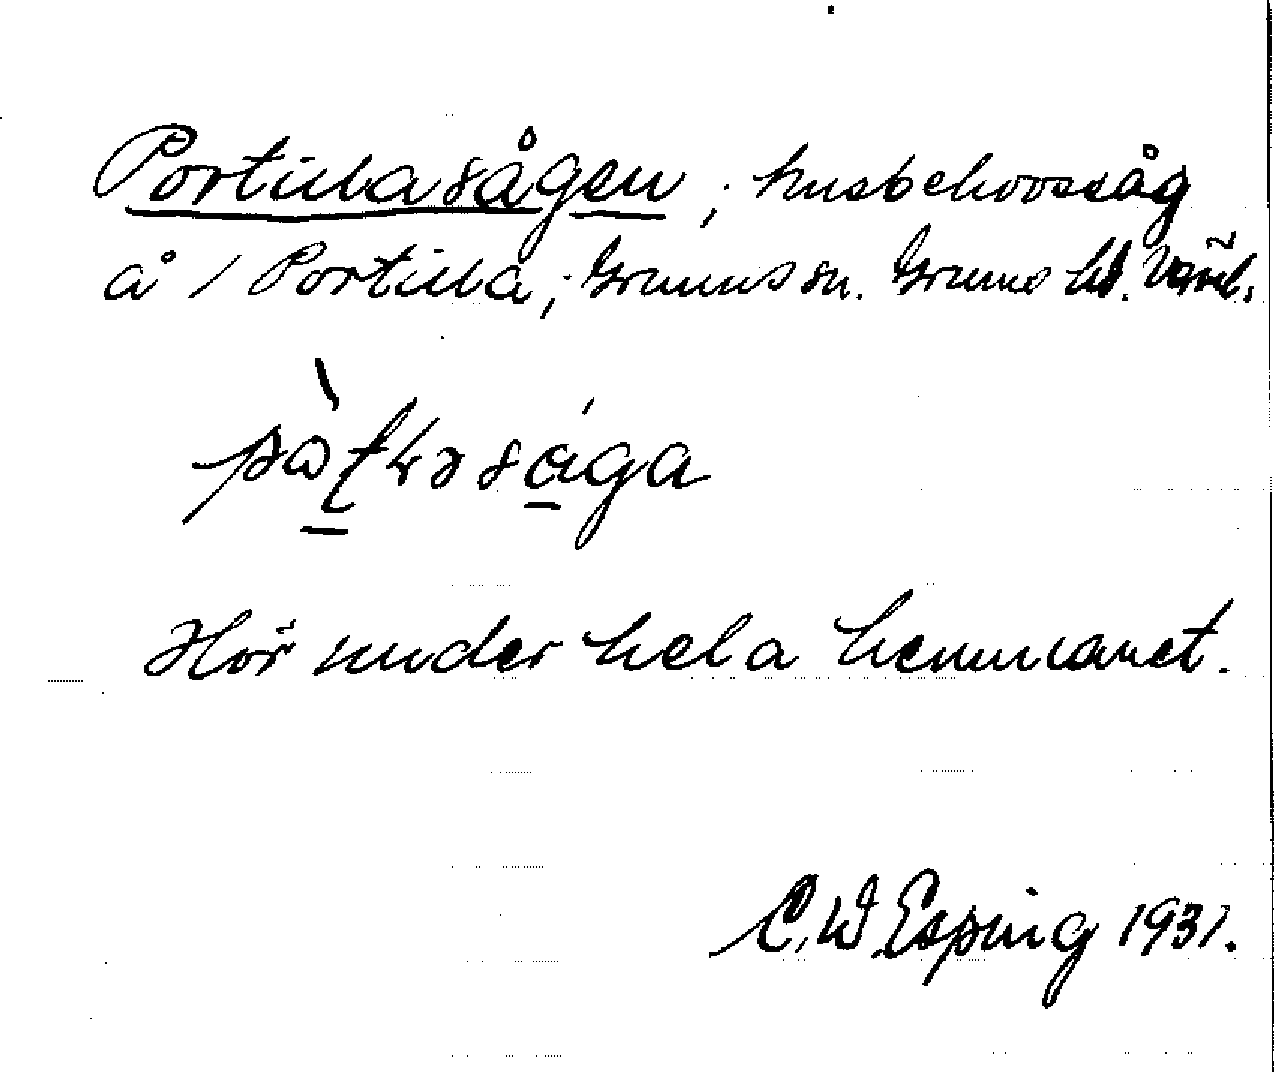 Portillasågen ; husbehovssåg
å 1 Portilla, Grums sn. Grums hd. Värml.
Hör under hela hemmanet.
C. W. Esping 1931.